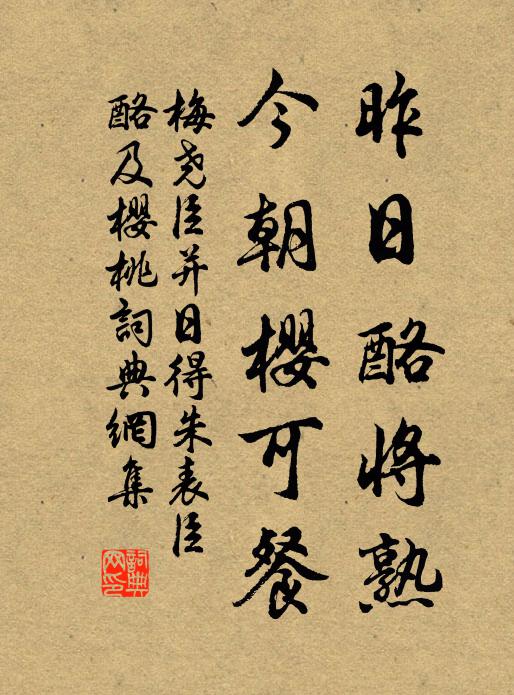 昨日酪將熟
今朝櫻可餐
梅堯臣并日得朱表臣
酪及櫻桃詞典網集
詞典網印